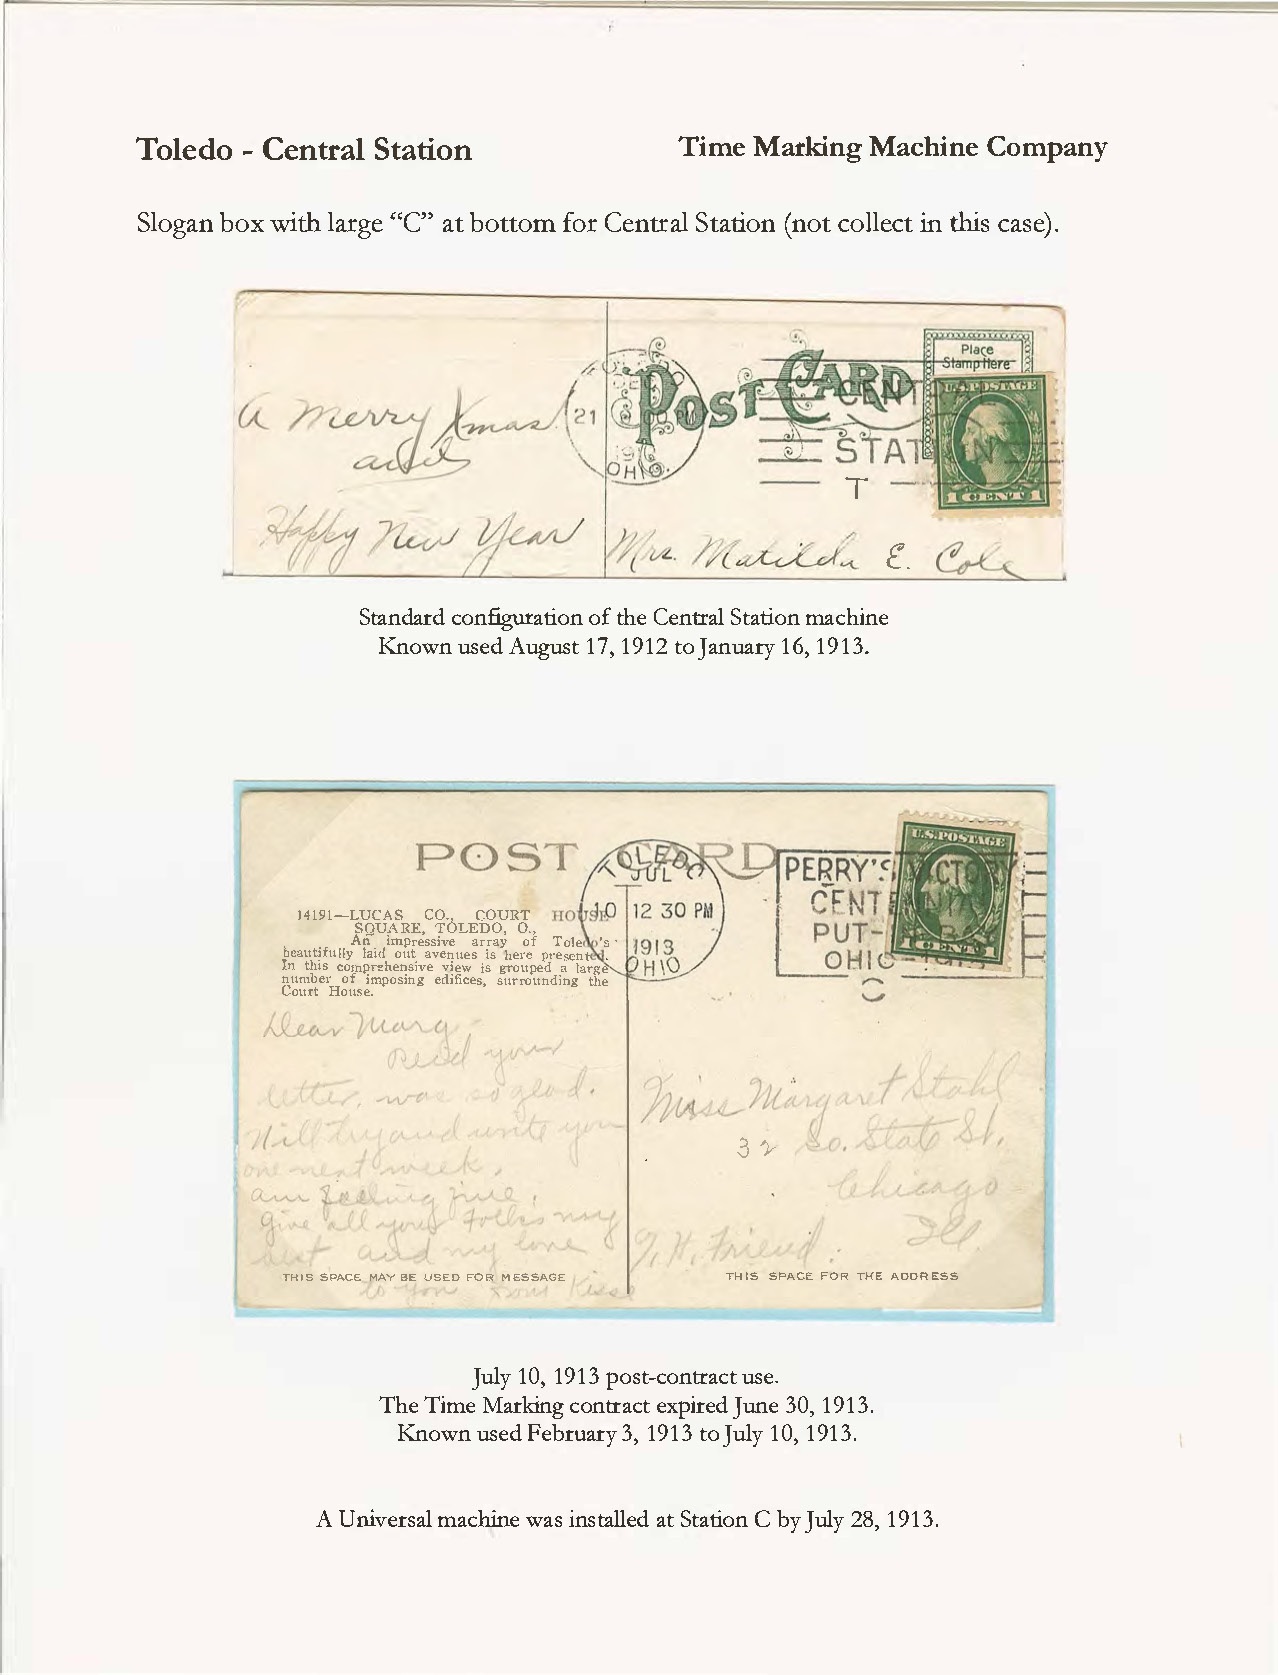 Toledo - Central Station
Time Marking Machine Company
Slogan box with large “C” at bottom for Central Station (not collect in this case).
Place
Stamp Here
POST CARD
TOLEDO
DEC
21 PM
191
OHIO.
CENTRA
STAT N
T
U.S. POSTAGE
1 CENT 1
A Merry Xmas
and
Happy New Year
Mrs. Matilda E. Cole
Standard configuration of the Central Station machine
Known used August 17, 1912 to January 16, 1913.
POST CARD
TOLEDO
JUL
10 12 30 PM
1913
OHIO
PERRY'S VICTORY
CENTENNIAL
PUT-
OHIO-1913
C
U.S. POSTAGE
1 CENT 1
14191—LUCAS CO., COURT HOUSE
SQUARE, TOLEDO, O.,
An impressive array of Toledo's
beautifully laid out avenues is here presented.
In this comprehensive view is grouped a large
number of imposing edifices, surrounding the
Court House.
Dear Marg,-
Recd your
letter, was so glad.
Will try and write you
one next week.
am feeling fine.
Give all your folks my
best and my love
to you from Kiss
Miss Margaret Stahl
32 So. State St.
Chicago
Ill.
Friend
THIS SPACE MAY BE USED FOR MESSAGE
THIS SPACE FOR THE ADDRESS
July 10, 1913 post-contract use.
The Time Marking contract expired June 30, 1913.
Known used February 3, 1913 to July 10, 1913.
A Universal machine was installed at Station C by July 28, 1913.